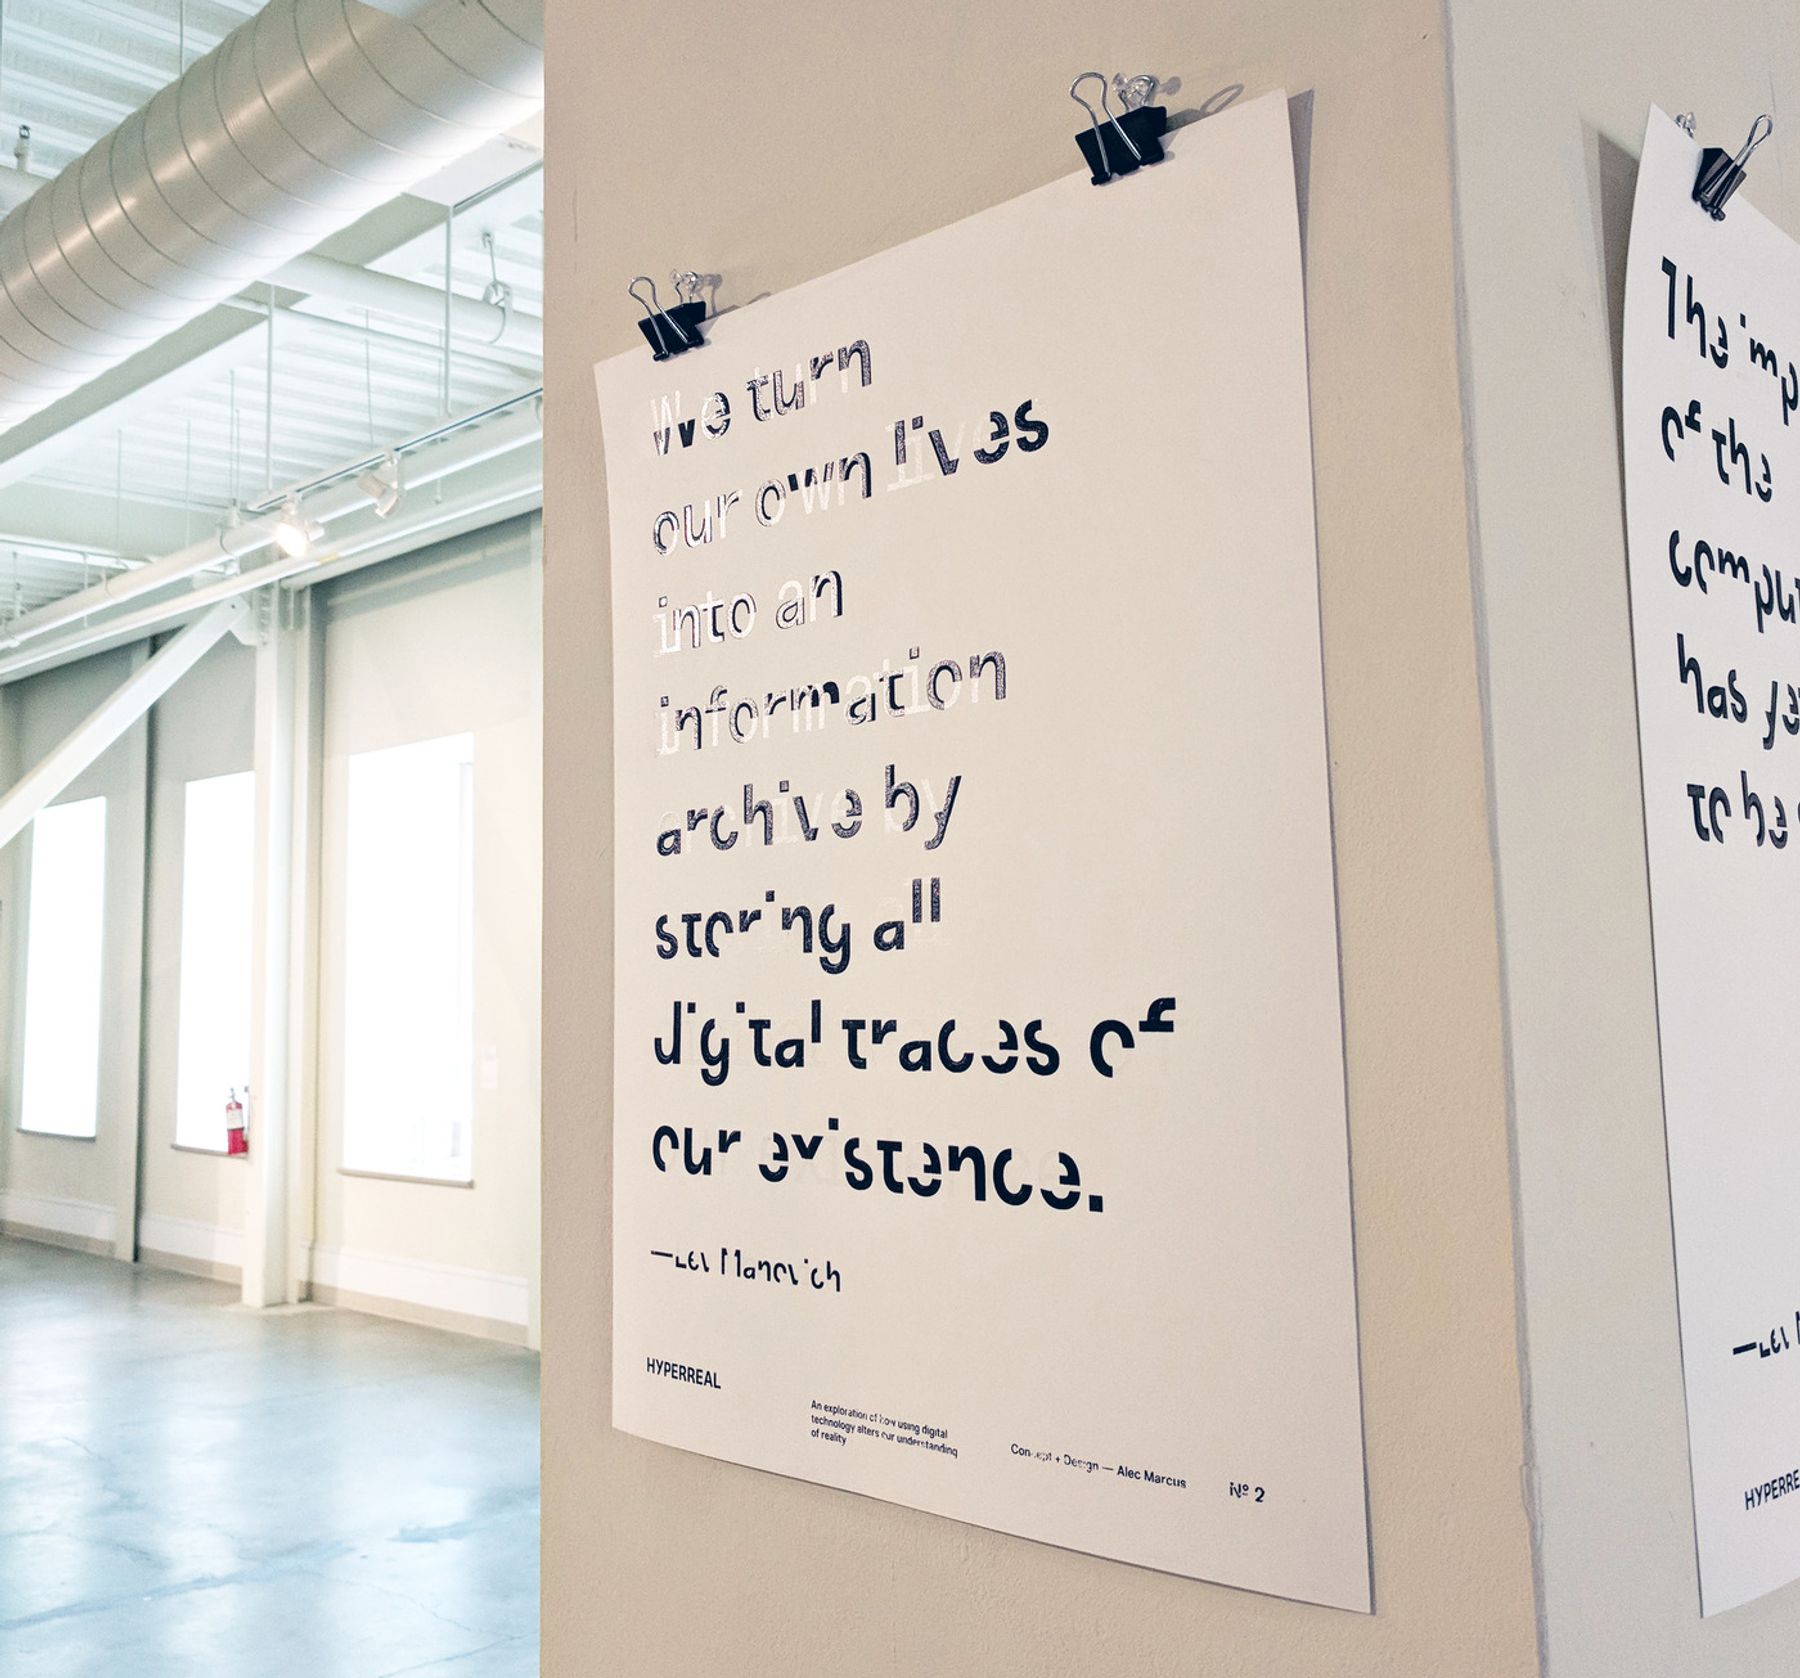 We turn
our own lives
into an
information
archive by
storing all
digital traces of
our existence.
—Lev Manovich
HYPERREAL
An exploration of how using digital
technology alters our understanding
of reality
Concept + Design — Alec Marcus
Nº 2
The
of the
has
to be